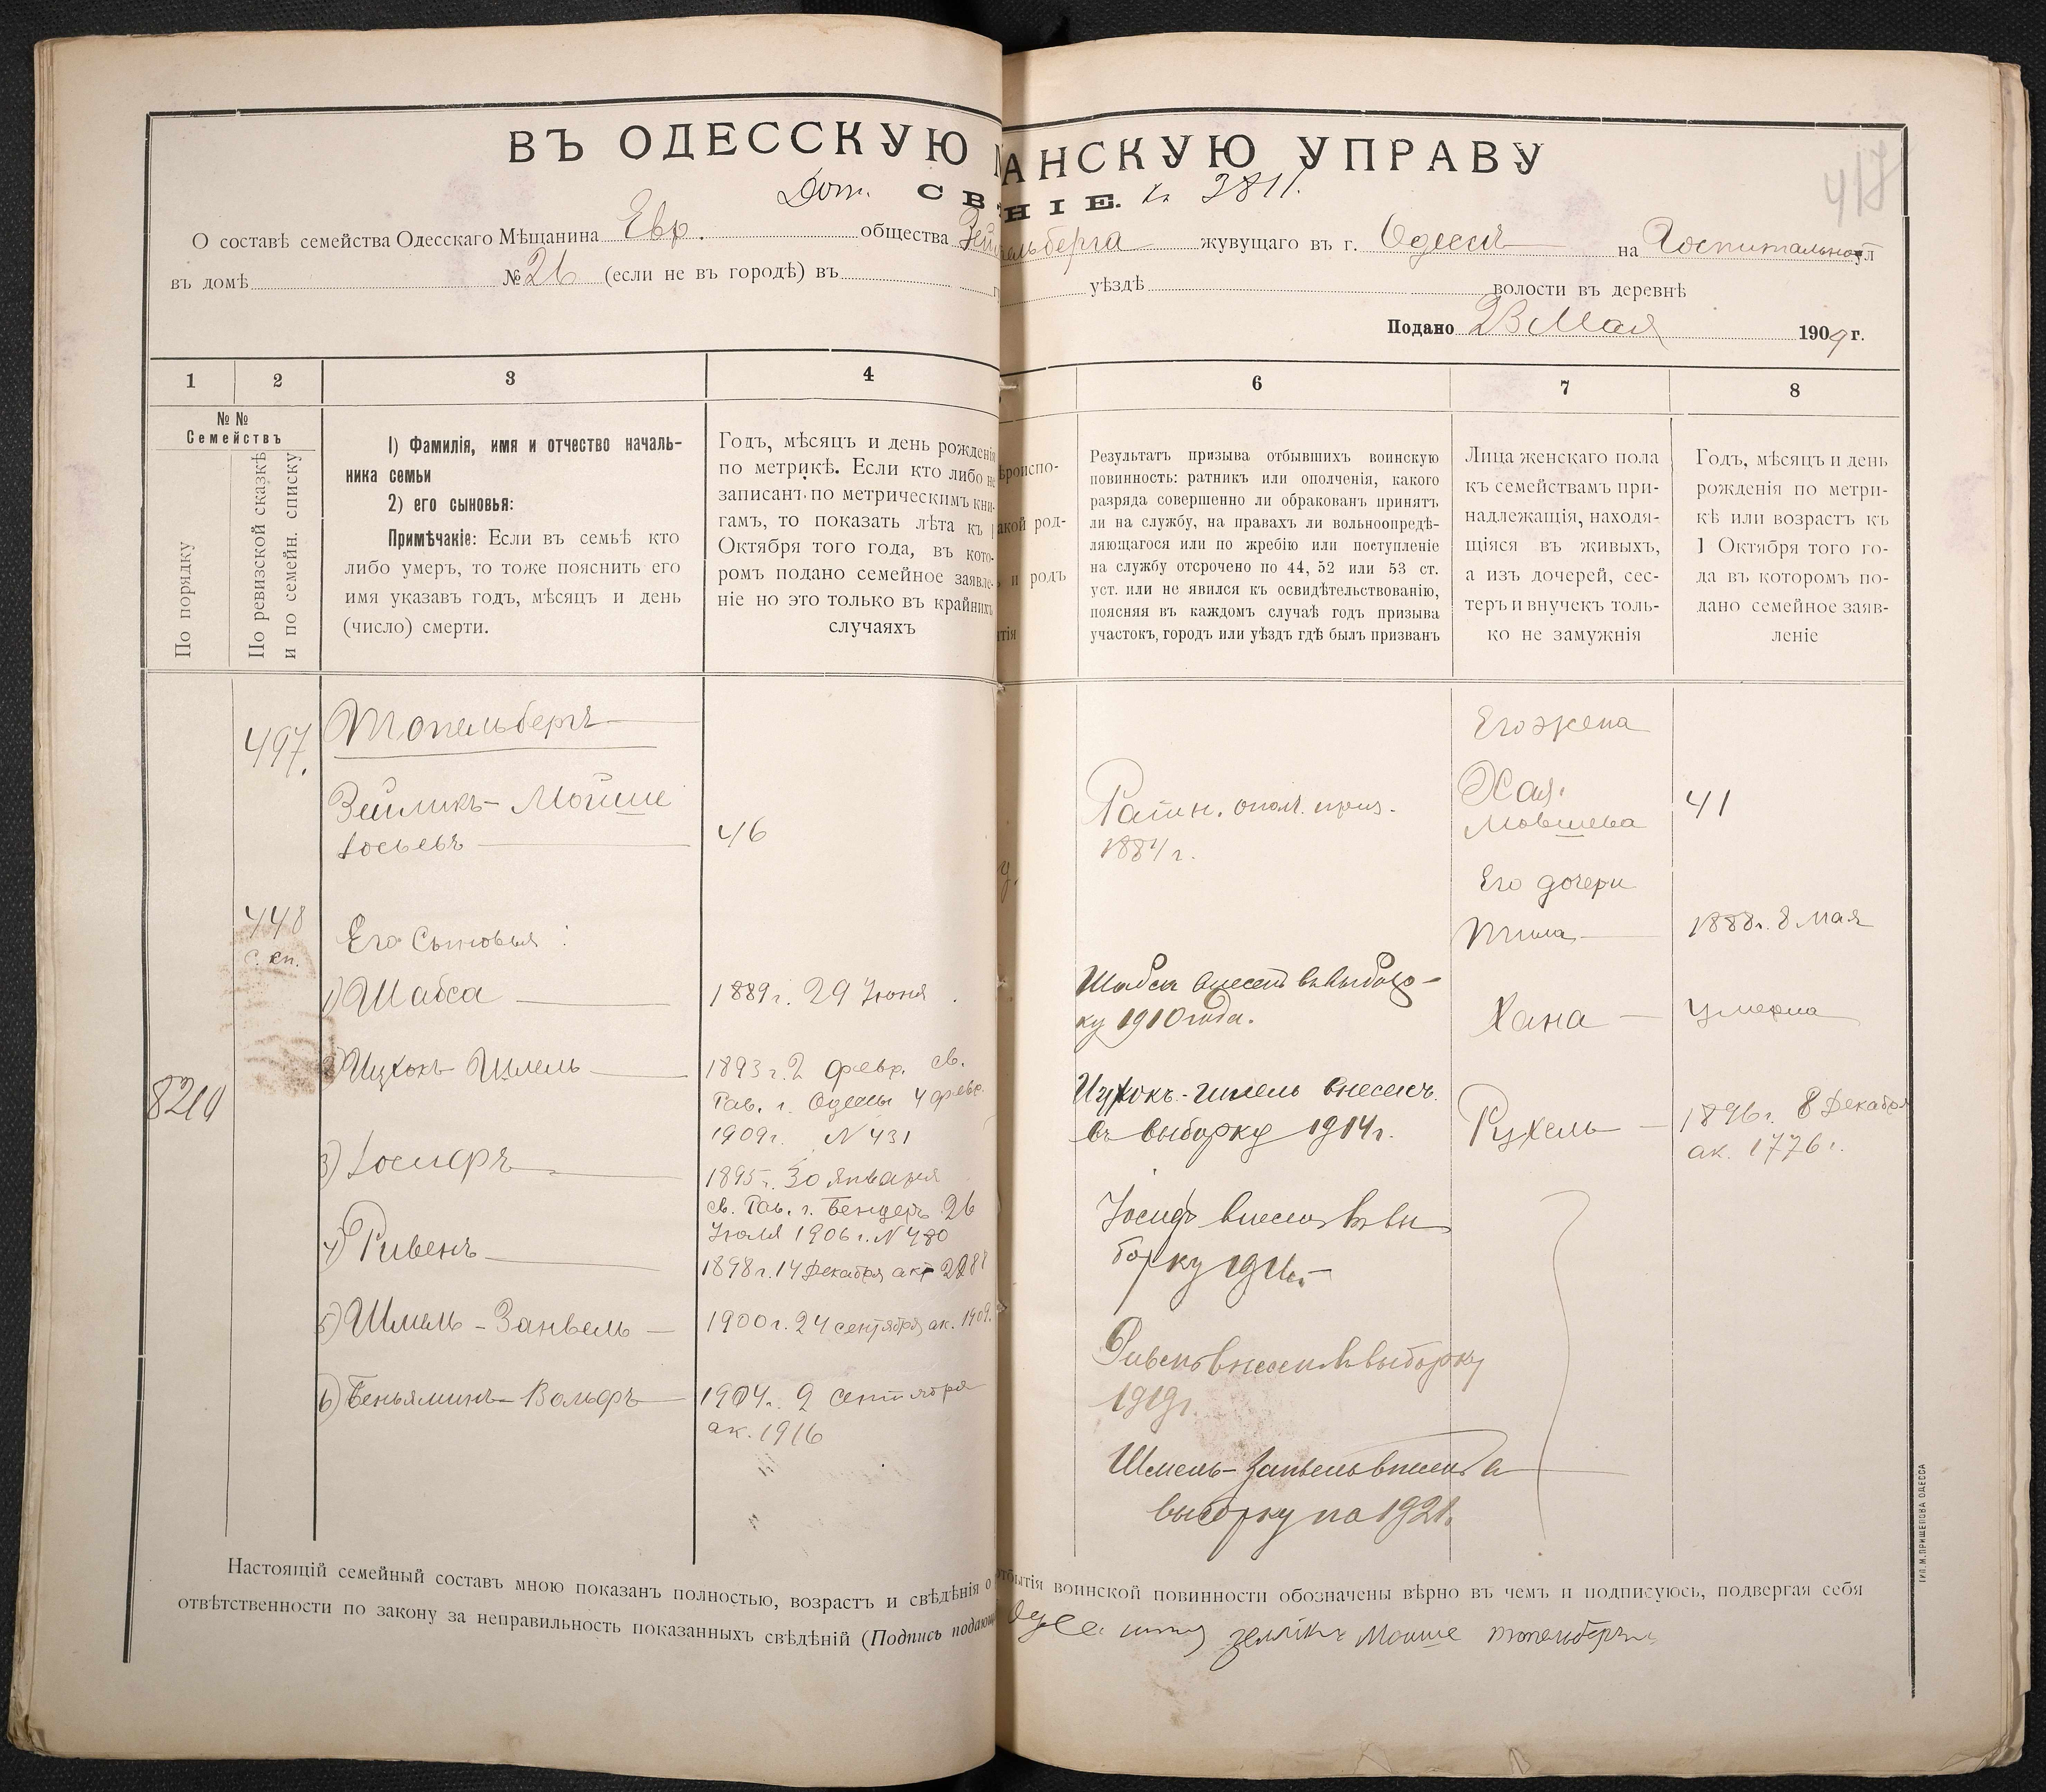 ВЪ ОДЕССКУЮ
АНСКУЮ УПРАВУ
Доп. СВ
НІЕ. к 3811.
417
О составѣ семейства Одесскаго Мѣщанина Евр. общества
ельберга жувущаго въ г. Одессѣ на Госпитальной ул
въ домѣ № 26 (если не въ городѣ) въ
уѣздѣ волости въ деревнѣ
Подано 23 Мая 1909 г.
1 2 3 4
6 7 8
№№
Семействъ
По порядку
По ревизской сказкѣ
и по семейн. списку
1) Фамилія, имя и отчество началь-
ника семьи
2) его сыновья:
Примѣчакіе: Если въ семьѣ кто
либо умеръ, то тоже пояснить его
имя указавъ годъ, мѣсяцъ и день
(число) смерти.
Годъ, мѣсяцъ и день рожденія
по метрикѣ. Если кто либо не
записанъ по метрическимъ кни-
гамъ, то показать лѣта къ 1
Октября того года, въ кото-
ромъ подано семейное заявле-
ніе но это только въ крайнихъ
случаяхъ
ѣроиспо-
акой род-
и родъ
ятія
Результатъ призыва отбывшихъ воинскую
повинность: ратникъ или ополченія, какого
разряда совершенно ли обракованъ принятъ
ли на службу, на правахъ ли вольноопредѣ-
ляющагося или по жребію или поступленіе
на службу отсрочено по 44, 52 или 53 ст.
уст. или не явился къ освидѣтельствованію,
поясняя въ каждомъ случаѣ годъ призыва
участокъ, городъ или уѣздъ гдѣ былъ призванъ
Лица женскаго пола
къ семействамъ при-
надлежащія, находя-
щіяся въ живыхъ,
а изъ дочерей, сес-
теръ и внучекъ толь-
ко не замужнія
Годъ, мѣсяцъ и день
рожденія по метри-
кѣ или возрастъ къ
1 Октября того го-
да въ котором по-
дано семейное заяв-
леніе
497.
448
с. сп.
Топельбергъ
Зейликъ-Мойше
Іосьевъ
46
Его Сыновья:
1) Шабса 1889 г. 29 Іюня.
2) Ицхокъ-Шмель 1893 г. 2 февр. св.
Рав. г. Одессы 4 февр.
1909 г. N 431
3) Іосифъ 1895 г. 30 января
св. Рав. г. Бендеръ 26
Іюля 1906 г. N 480
4) Рувенъ 1898 г. 14 декабря акт
5) Шмель-Занвель 1900 г. 24 сентября ак. 1909.
6) Беньяминъ-Вольфъ 1904 г. 9 сентября
ак. 1916
Ратн. ополч. приз.
1884 г.
Шабса внесенъ въ выбор-
ку 1910 года.
Ицхокъ-Шмель внесенъ
въ выборку 1914 г.
Іосифъ внесенъ въ вы
борку
Рувенъ внесенъ въ выборку
1919 г.
Шмель-Занвель внесенъ в
выборку на 1921.
Его жена
Хая.
Мовшева
41
Его дочери
1888 г. 8 мая
Хана умерла
Рухель 1896 г. 8 декабря
ак. 1776.
Настоящій семейный составъ мною показанъ полностью, возрастъ и свѣдѣнія о
отбытія воинской повинности обозначены вѣрно въ чемъ и подписуюсь, подвергая себя
отвѣтственности по закону за неправильность показанныхъ свѣдѣній (Подпись подающ
зейликъ Моише топельбергъ
ТИП. М. ПРИЩЕПОВА ОДЕССА